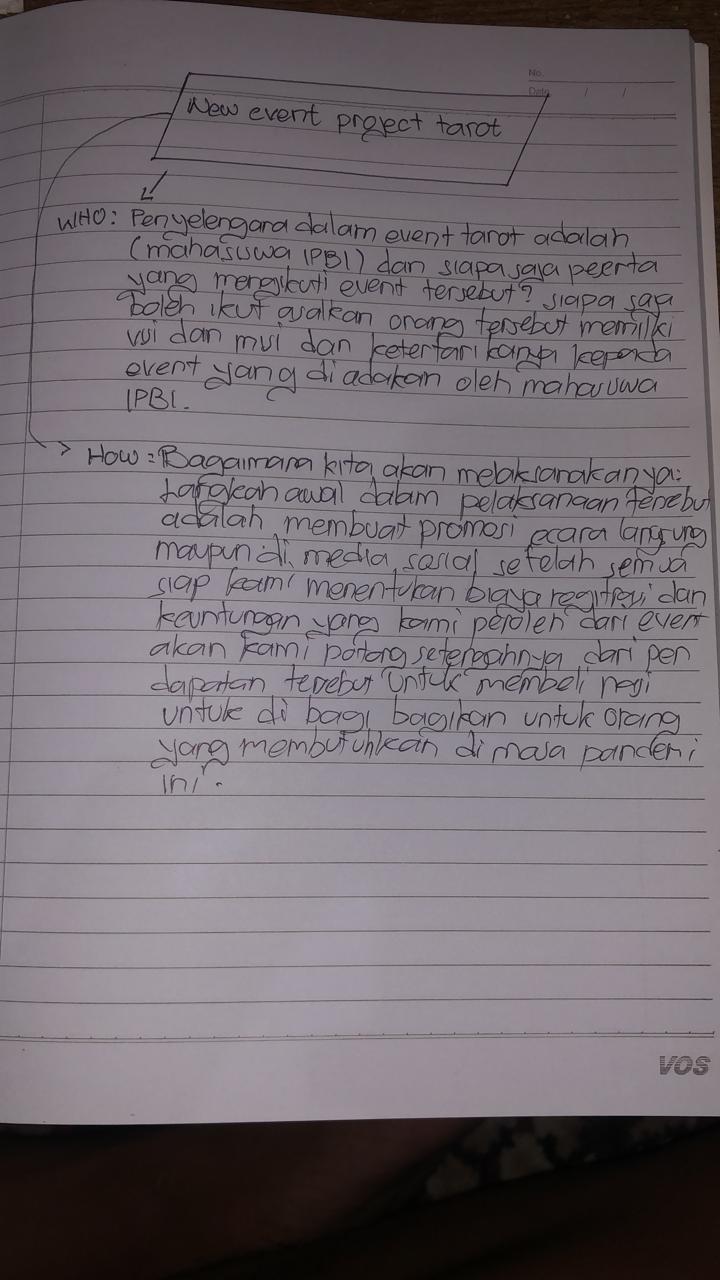 No.
Date / /
New event project tarot
WHO: Penyelengara dalam event tarot adalah
(mahasuwa IPBI) dan siapa saja peerta
yang mengikuti event tersebut? siapa saja
boleh ikut asalkan orang tersebut memilki
visi dan misi dan ketertarikanya kepada
event yang di adakan oleh mahasuwa
IPBI.
How: Bagaimana kita akan melaksanakanya:
Langkah awal dalam pelaksanaan tersebut
adalah membuat promosi ecara langsung
maupun di media sosial setelah semua
siap kami menentukan biaya regitrasi dan
keuntungan yang kami peroleh dari event
akan kami potong setengahnya dari pen
dapatan tersebut untuk membeli nasi
untuk di bagi bagikan untuk orang
yang membutuhkan di masa pandemi
ini.
VOS